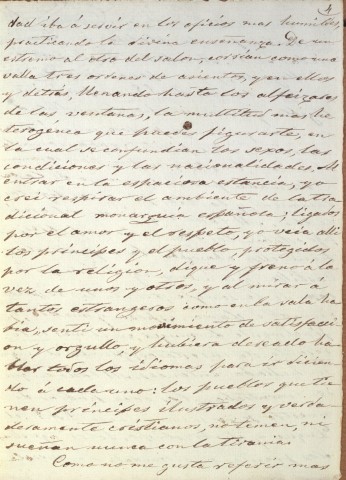 4
dad iba á servir en los oficios mas humildes,
practicando la divina enseñanza. De un
estremo al otro del salon, corrian como una
valla tres ordenes de asientos, y en ellos
y detras, llenando hasta los alfeizares
de las ventanas, la multitud mas he
terogenea que puedes figurarte, en
la cual se confundian los sexos, las
condiciones y las nacionalidades. Al
entrar en la espaciosa estancia, yo
crei respirar el ambiente de la tra
dicional monarquia española; ligados
por el amor y el respeto, yo veia alli
los principes y el pueblo, protegidos
por la religion, dique y freno á la
vez de unos y otros, y al mirar á
tantos estrangeros como en la sala ha
bia, senti un movimiento de satisfacci
on y orgullo, y hubiera deseado ha
blar todos los idiomas para ir dicien
do á cada uno: los pueblos que tie
nen principes ilustrados y verda
deramente cristianos, no tienen, ni
sueñan nunca con la tirania.
Como no me gusta referir mas